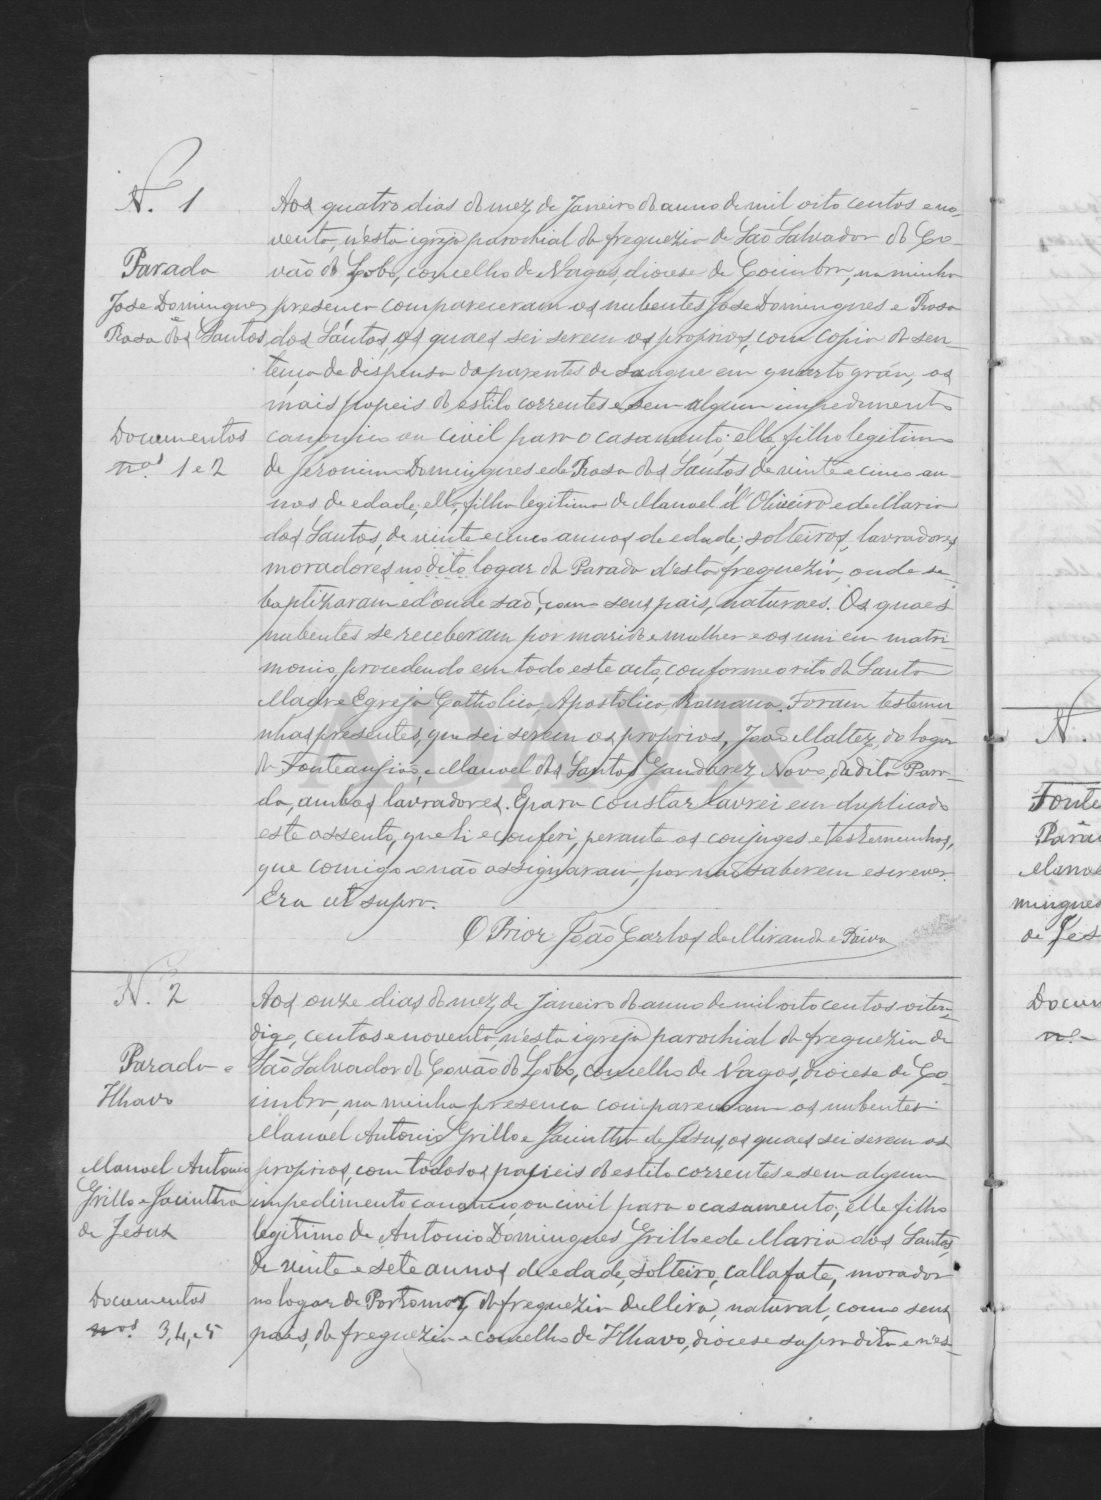 N. 1
Parada
Jose Domingues e
Rosa dos Santos
Documentos
nos 1 e 2
Aos quatro dias do mez de Janeiro do anno de mil oito centos e no-
venta, n'esta igreja parochial da freguezia de São Salvador de Co-
vão do Lobo, concelho de Vagos, diocese de Coimbra, na minha
presença compareceram os nubentes Jose Domingues e Rosa
dos Santos, os quaes sei serem os proprios, com copia de sen-
tença de dispensa de parentes de sangue em quarto gráu, os
mais papeis do estilo correntes e sem algum impedimento
canonico ou civil para o casamento; elle, filho legitimo
de Jeronimo Domingues e de Rosa dos Santos, de vinte e cinco an-
nos de edade; ella, filha legitima de Manoel d'Oliveira e de Maria
dos Santos, de vinte e cinco annos de edade; solteiros, lavradores
moradores no dito logar da Parada d'esta freguezia, onde se
baptizaram e d'onde são, como seus pais, naturaes. Os quaes
nubentes se receberam por marido e mulher e os uni em matri-
monio, procedendo em todo este acto, conforme o rito da Santa
Madre Egreja Catholica, Apostolica, Romana. Foram testemu-
nhas presentes, que sei serem os proprios, João Maltez, do logar
de Fonteangião, e Manoel dos Santos Gandarez Novo, da dita Para-
da, ambos lavradores. E para constar lavrei em duplicado
este assento, que li e conferi, perante os conjuges e testemunhas,
que comigo não assignaram, por não saberem escrever.
Era ut supra.
O Prior João Carlos de Miranda e Paiva
N. 2
Parada e
Ilhavo
Manoel Antonio
Grillo e Jacintha
de Jesus
Documentos
nos 3, 4, e 5
Aos onze dias do mez de Janeiro do anno de mil oito centos oiten-
digo, centos e noventa, n'esta igreja parochial da freguezia de
São Salvador de Covão do Lobo, concelho de Vagos, diocese de Co-
imbra, na minha presença compareceram os nubentes
Manoel Antonio Grillo e Jacintha de Jesus, os quaes sei serem os
proprios, com todos os papeis do estilo correntes e sem algum
impedimento, canonico, ou civil para o casamento; elle filho
legitimo de Antonio Domingues Grillo e de Maria dos Santos,
de vinte e sete annos de edade, solteiro, callafate, morador
no logar de Portomar, da freguezia de Mira, natural, como seus
paes, da freguezia e concelho de Ilhavo, diocese supradita e n'es-
N.
Fonte
Para
Manoe
mingues
de Jes
Docum
no
ADAVR